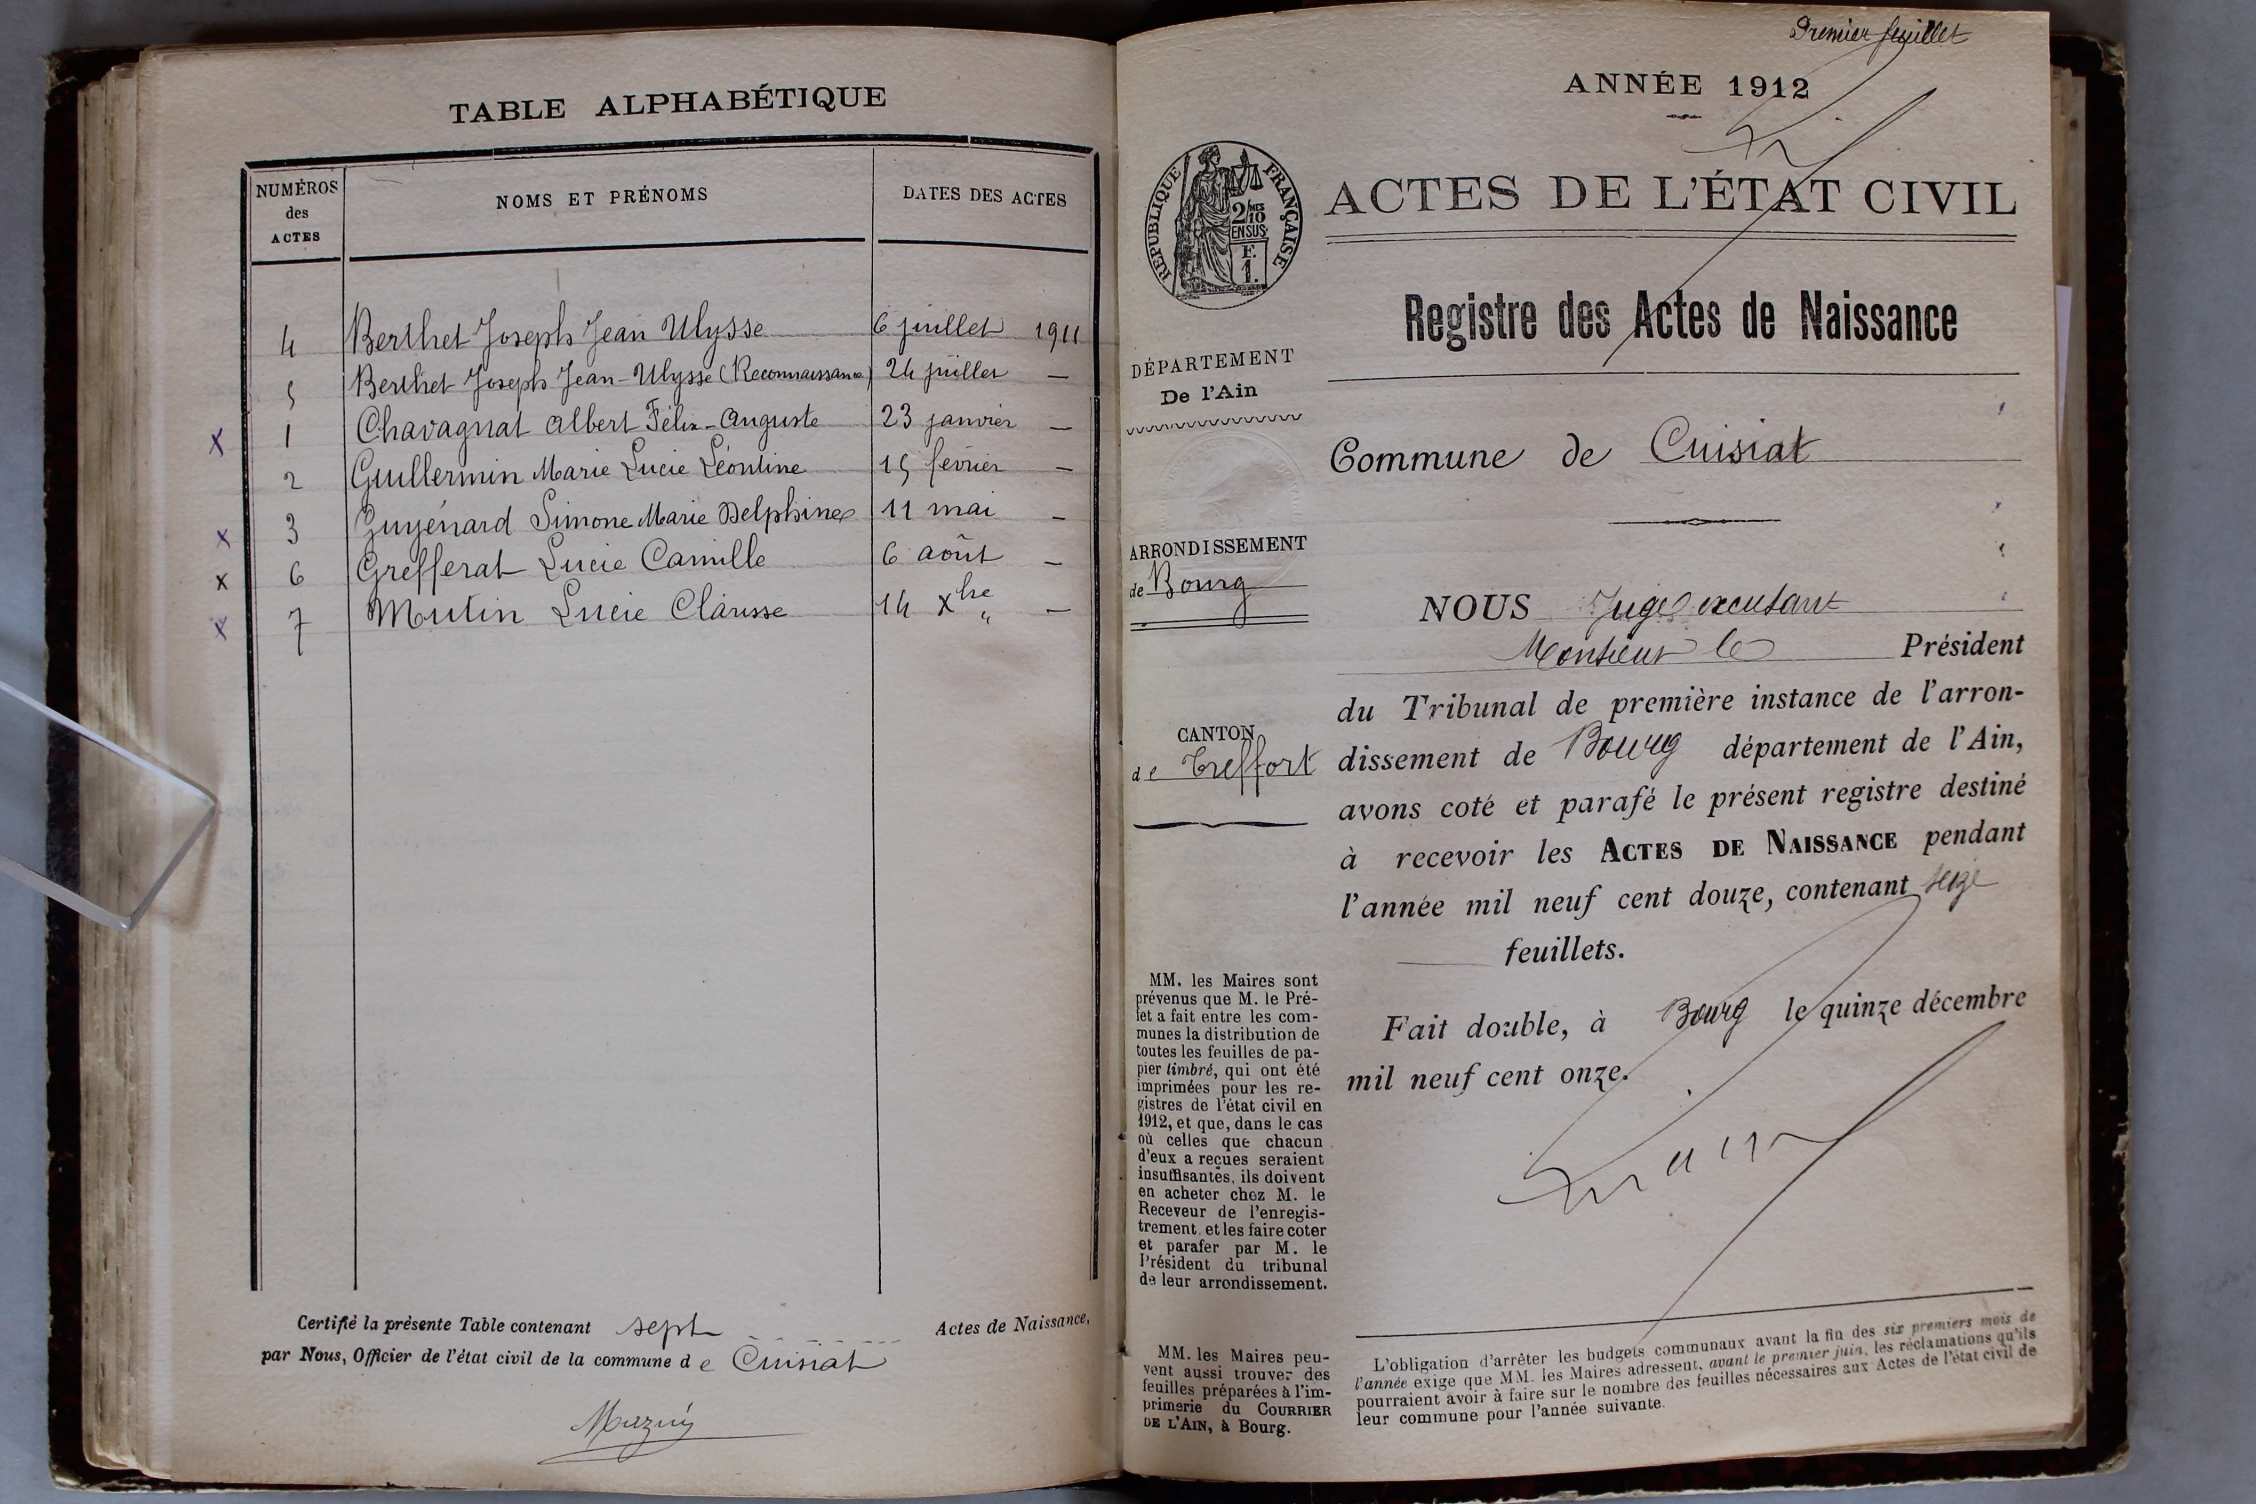 TABLE ALPHABÉTIQUE
NUMÉROS des ACTES
NOMS ET PRÉNOMS
DATES DES ACTES
4 Berthet Joseph Jean Ulysse 6 juillet 1911
5 Berthet Joseph Jean-Ulysse (Reconnaissance) 24 juillet —
x 1 Chavagnat Albert Félix-Auguste 23 janvier —
2 Guillermin Marie Lucie Léontine 15 février —
x 3 Guyénard Simone Marie Delphine 11 mai —
x 6 Grefferat Lucie Camille 6 août —
x 7 Mutin Lucie Clarisse 14 Xbre " —
Certifié la présente Table contenant sept Actes de Naissance,
par Nous, Officier de l'état civil de la commune de Cuisiat
Premier feuillet
ANNÉE 1912
RÉPUBLIQUE FRANÇAISE
2/10 MES
EN SUS
F.
1.
ACTES DE L'ÉTAT CIVIL
Registre des Actes de Naissance
DÉPARTEMENT
De l'Ain
Commune de Cuisiat
ARRONDISSEMENT
de Bourg
CANTON
de Treffort
NOUS Juge excusant
Monsieur le Président
du Tribunal de première instance de l'arron-
dissement de Bourg département de l'Ain,
avons coté et parafé le présent registre destiné
à recevoir les ACTES DE NAISSANCE pendant
l'année mil neuf cent douze, contenant seize
feuillets.
Fait double, à Bourg le quinze décembre
mil neuf cent onze.
MM. les Maires sont
prévenus que M. le Pré-
fet a fait entre les com-
munes la distribution de
toutes les feuilles de pa-
pier timbré, qui ont été
imprimées pour les re-
gistres de l'état civil en
1912, et que, dans le cas
où celles que chacun
d'eux a reçues seraient
insuffisantes, ils doivent
en acheter chez M. le
Receveur de l'enregis-
trement, et les faire coter
et parafer par M. le
Président du tribunal
de leur arrondissement.
MM. les Maires peu-
vent aussi trouver des
feuilles préparées à l'im-
primerie du COURRIER
DE L'AIN, à Bourg.
L'obligation d'arrêter les budgets communaux avant la fin des six premiers mois de
l'année exige que MM. les Maires adressent, avant le premier juin, les réclamations qu'ils
pourraient avoir à faire sur le nombre des feuilles nécessaires aux Actes de l'état civil de
leur commune pour l'année suivante.